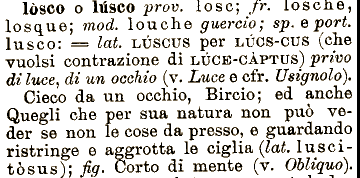 lòsco o lúsco prov. losc; fr. losche,
losque; mod. louche guercio; sp. e port.
lusco: = lat. LÚSCUS per LÚCS-CUS (che
vuolsi contrazione di LÙCE-CÀPTUS) privo
di luce, di un occhio (v. Luce e cfr. Usignolo).
Cieco da un occhio, Bircio; ed anche
Quegli che per sua natura non può ve-
der se non le cose da presso, e guardando
ristringe e aggrotta le ciglia (lat. lusci-
tòsus); fig. Corto di mente (v. Obliquo).